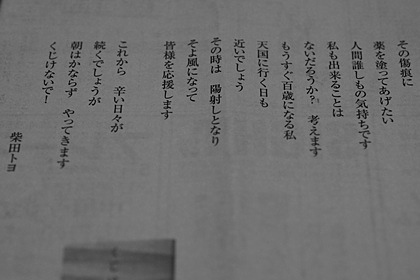 その傷痕に
薬を塗ってあげたい
人間誰しもの気持ちです
私も出来ることは
ないだろうか? 考えます
もうすぐ百歳になる私
天国に行く日も
近いでしょう
その時は 陽射しとなり
そよ風になって
皆様を応援します
これから 辛い日々が
続くでしょうが
朝はかならず やってきます
くじけないで!
柴田トヨ